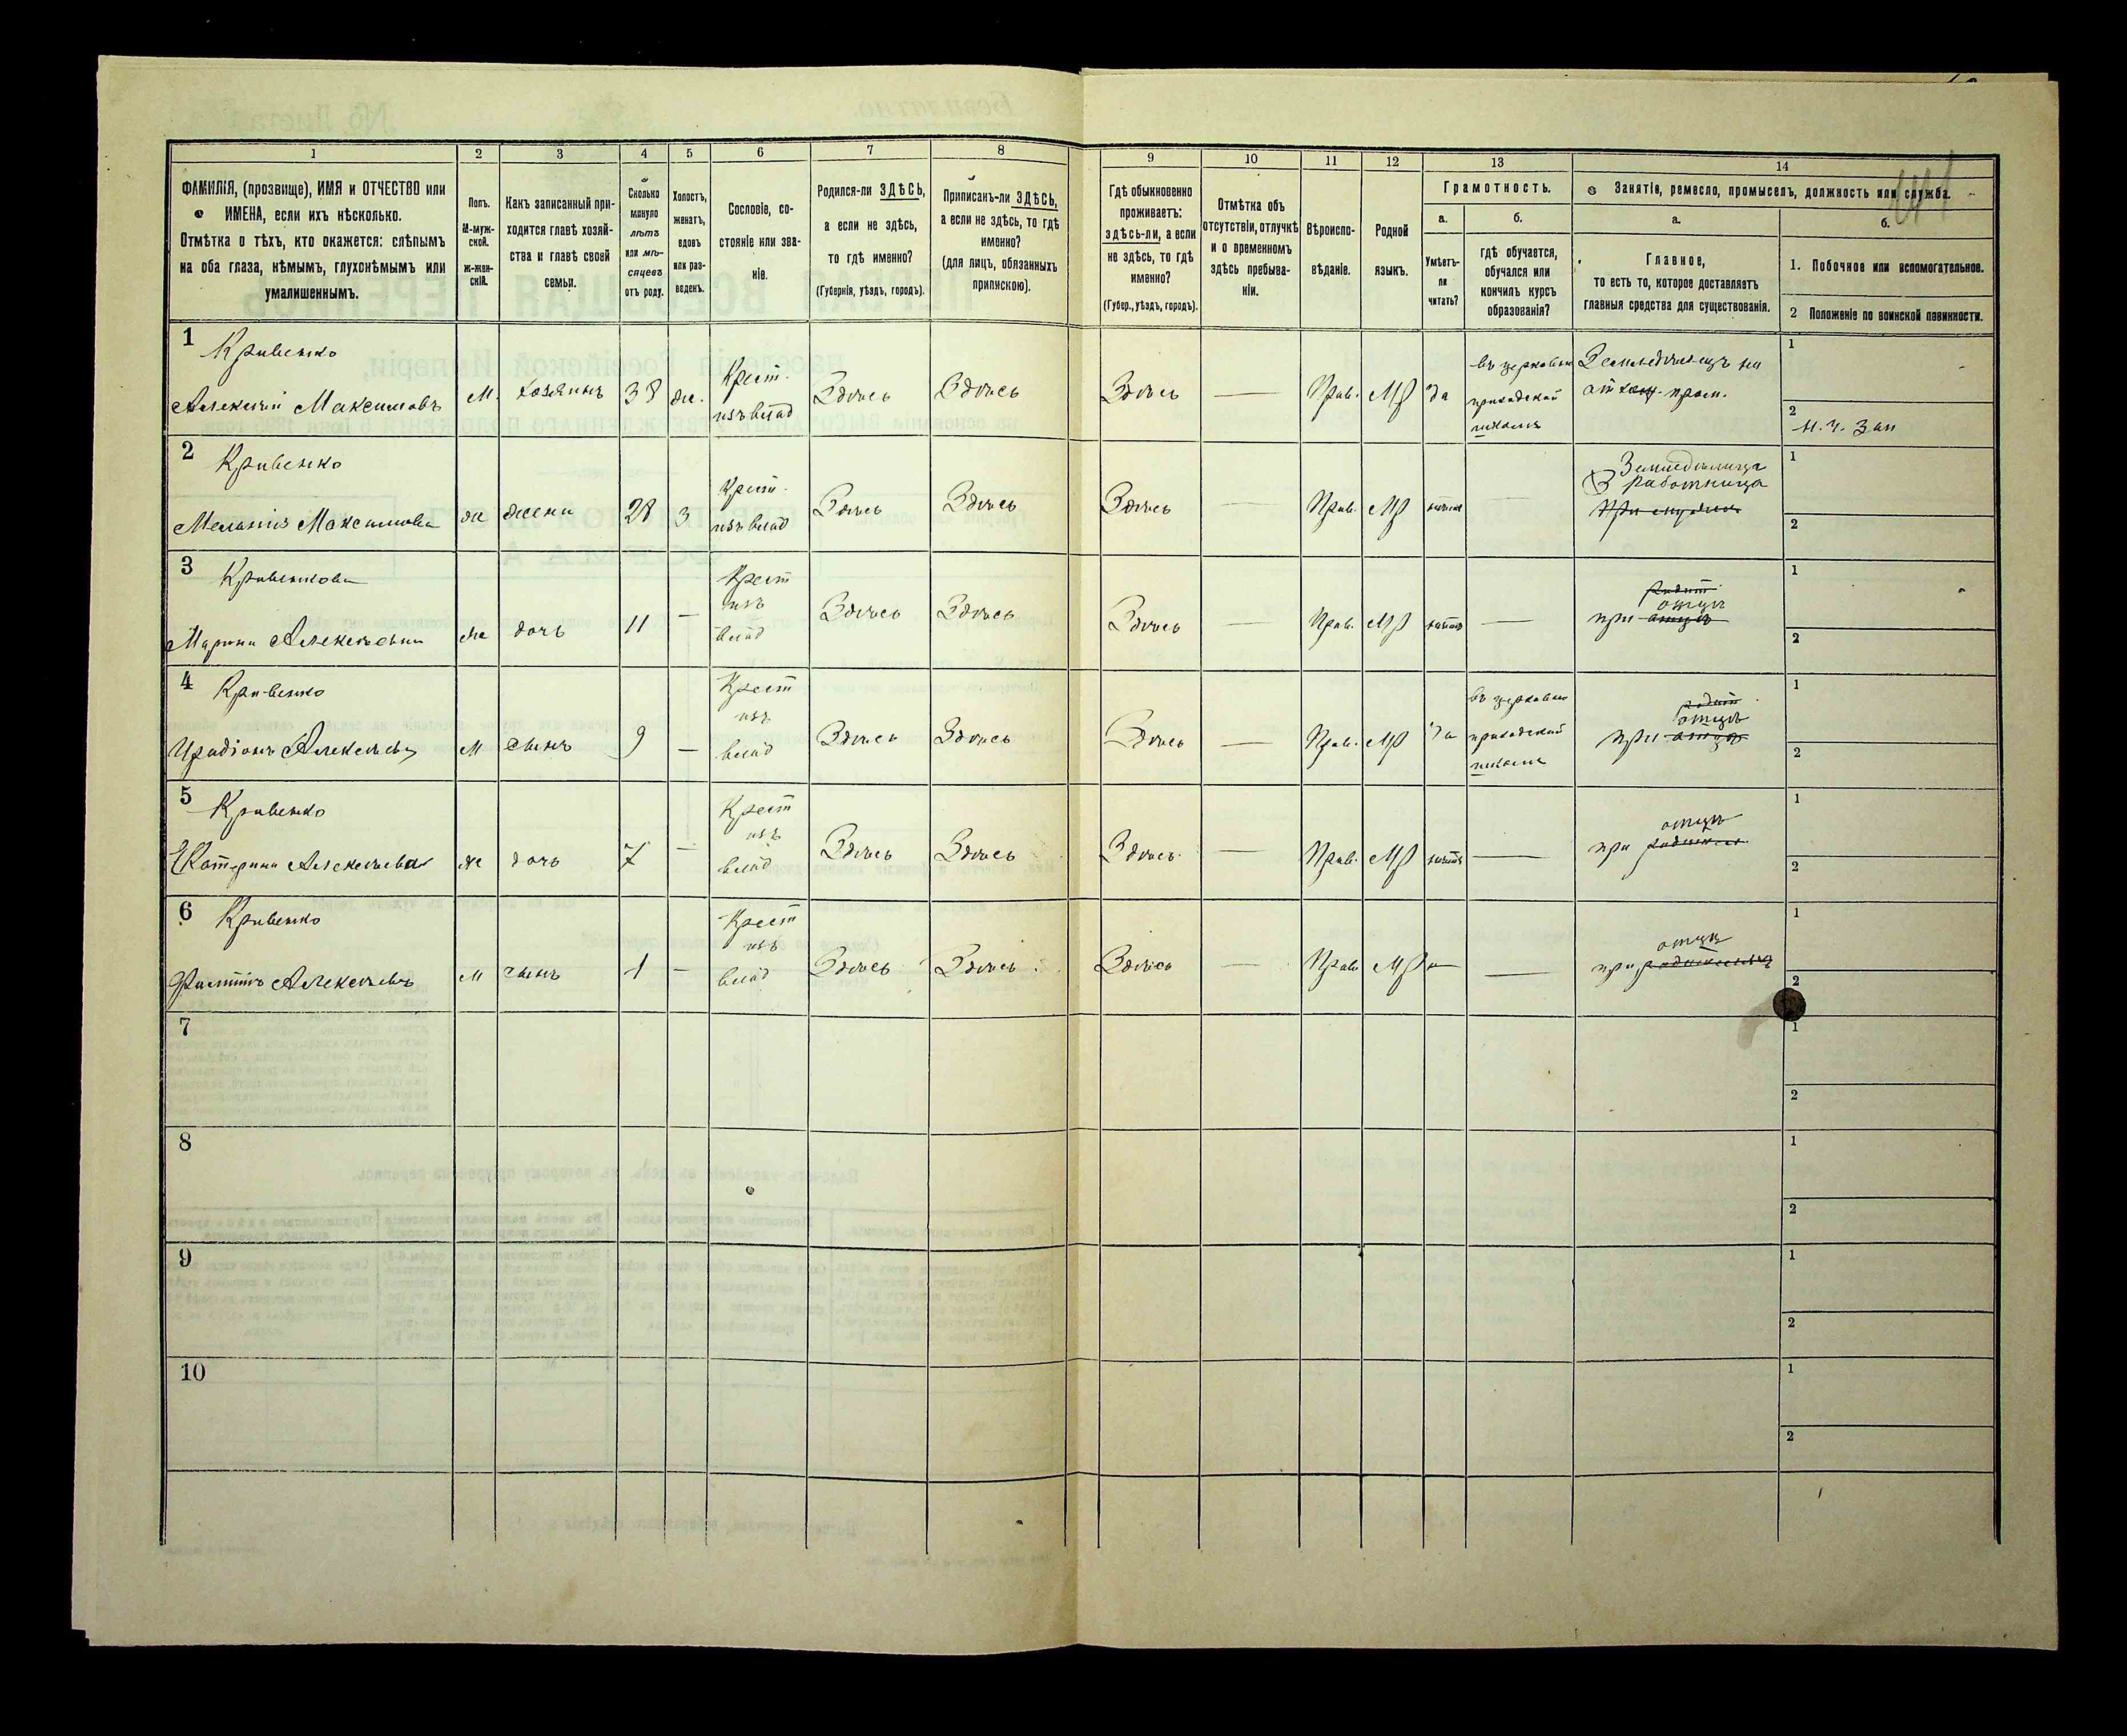 1
2
3
4
5
6
7
8
9
10
11
12
13
14
ФАМИЛІЯ, (прозвище), ИМЯ и ОТЧЕСТВО или
ИМЕНА, если ихъ нѣсколько.
Отмѣтка о тѣхъ, кто окажется: слѣпымъ
на оба глаза, нѣмымъ, глухонѣмымъ или
умалишеннымъ.
Полъ.
М-муж-
ской.
ж-жен-
скій.
Какъ записанный при-
ходится главѣ хозяй-
ства и главѣ своей
семьи.
Сколько
минуло
лѣтъ
или мѣ-
сяцевъ
отъ роду.
Холостъ,
женатъ,
вдовъ
или раз-
веденъ.
Сословіе, со-
стояніе или зва-
ніе.
Родился-ли ЗДѢСЬ,
а если не здѣсь,
то гдѣ именно?
(Губернія, уѣздъ, городъ).
Приписанъ-ли ЗДѢСЬ,
а если не здѣсь, то гдѣ
именно?
(для лицъ, обязанныхъ
припискою).
Гдѣ обыкновенно
проживаетъ:
здѣсь-ли, а если
не здѣсь, то гдѣ
именно?
(Губер., уѣздъ, городъ).
Отмѣтка объ
отсутствіи, отлучкѣ
и о временномъ
здѣсь пребыва-
ніи.
Вѣроиспо-
вѣданіе.
Родной
языкъ.
Грамотность.
а.
Умѣетъ-
ли
читать?
б.
гдѣ обучается,
обучался или
кончилъ курсъ
образованія?
Занятіе, ремесло, промыселъ, должность или служба.
а.
Главное,
то есть то, которое доставляетъ
главныя средства для существованія.
б.
1. Побочное или вспомогательное.
2 Положеніе по воинской повинности.
1
Кривенко
Алексѣй Максимовъ
М.
хозяинъ
38
же.
Крест.
изъ влад
Здѣсь
Здѣсь
Здѣсь
Прав.
МР
да
въ церковно
приходской
школѣ
Земледѣлецъ на
1
2
2
Кривенко
Меланія Максимова
же
жена
28
З
Крест.
изъ влад
Здѣсь
Здѣсь
Здѣсь
Прав.
МР
Земледѣлица
Работница
При мужѣ
1
2
3
Кривенкова
Марина Алексѣевна
же
дочь
11
Крест
изъ
влад
Здѣсь
Здѣсь
Здѣсь
Прав.
МР
отцѣ
при отцѣ
1
2
4
Кривенко
Иродіонъ Алексѣевъ
М
сынъ
9
Крест
изъ
влад
Здѣсь
Здѣсь
Здѣсь
Прав.
МР
да
въ церковно
приходской
школѣ
отцѣ
при отцѣ
1
2
5
Кривенко
Катерина Алексѣева
же
дочь
7
Крест
изъ
влад
Здѣсь
Здѣсь
Здѣсь
Прав.
МР
отцѣ
при
1
2
6
Кривенко
Алексѣевъ
М
сынъ
1
Крест
изъ
влад
Здѣсь
Здѣсь
Здѣсь
Прав.
МР
отцѣ
при
1
2
7
1
2
8
1
2
9
1
2
10
1
2